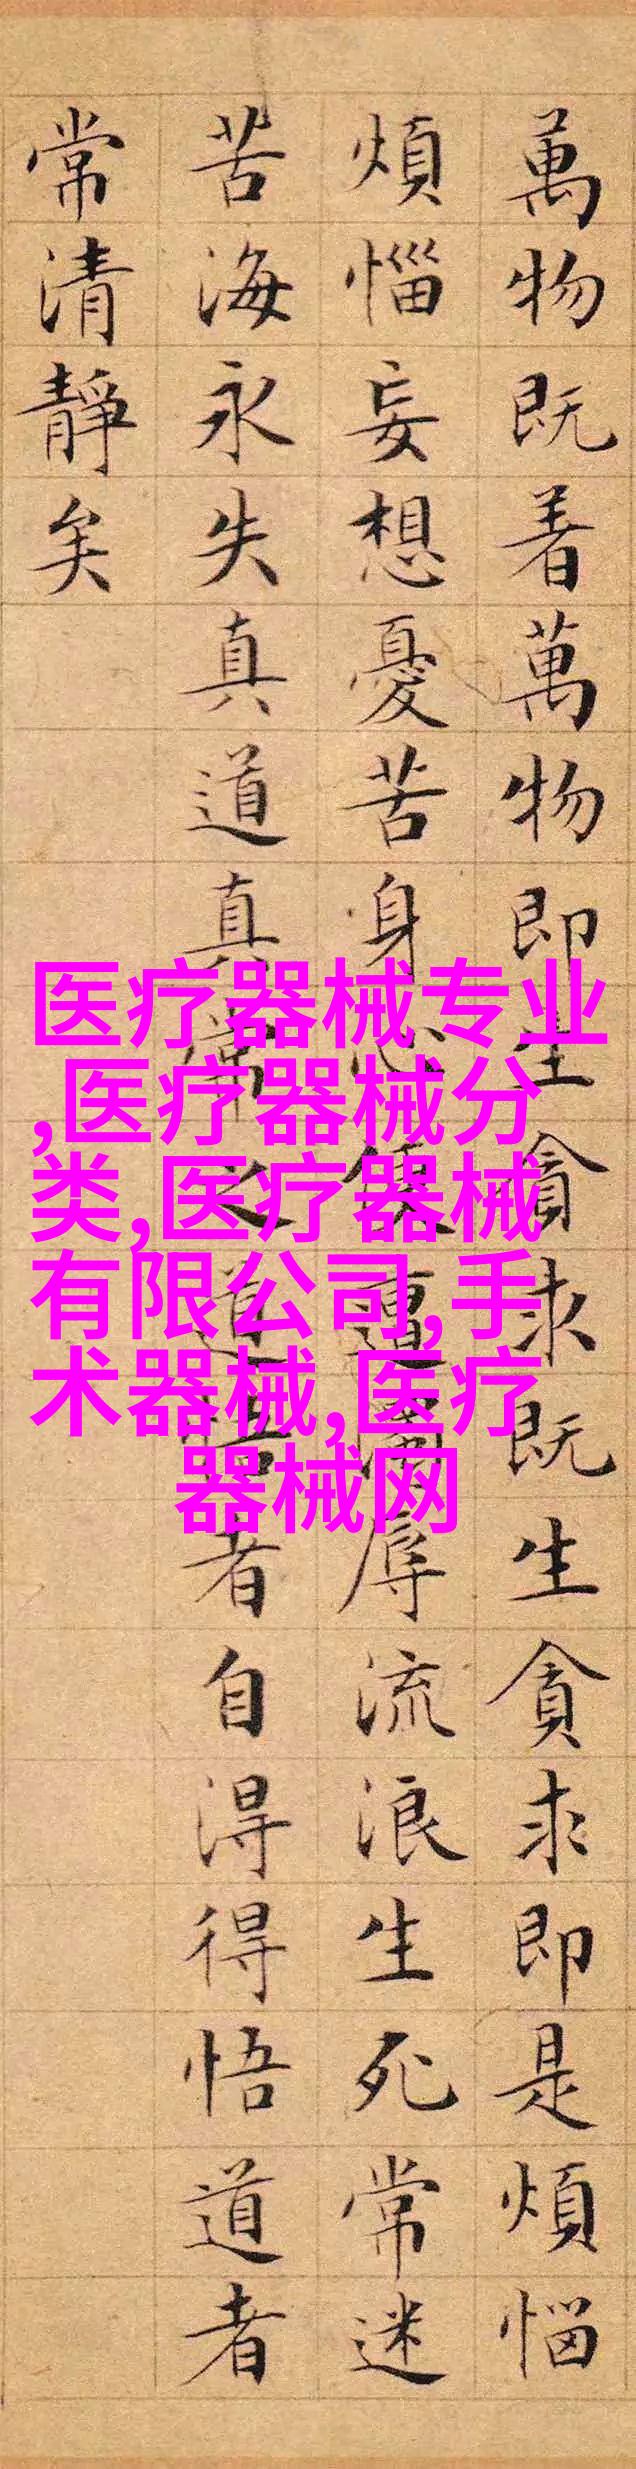 萬物既着萬物即生貪求既生貪求即是煩惱
煩惱妄想憂苦身心便遭濁辱流浪生死常迷
苦海永失真道真常之道悟者自得得悟道者
常清靜矣
医疗器械专业
,医疗器械分
类,医疗器械
有限公司,手
术器械,医疗
器械网